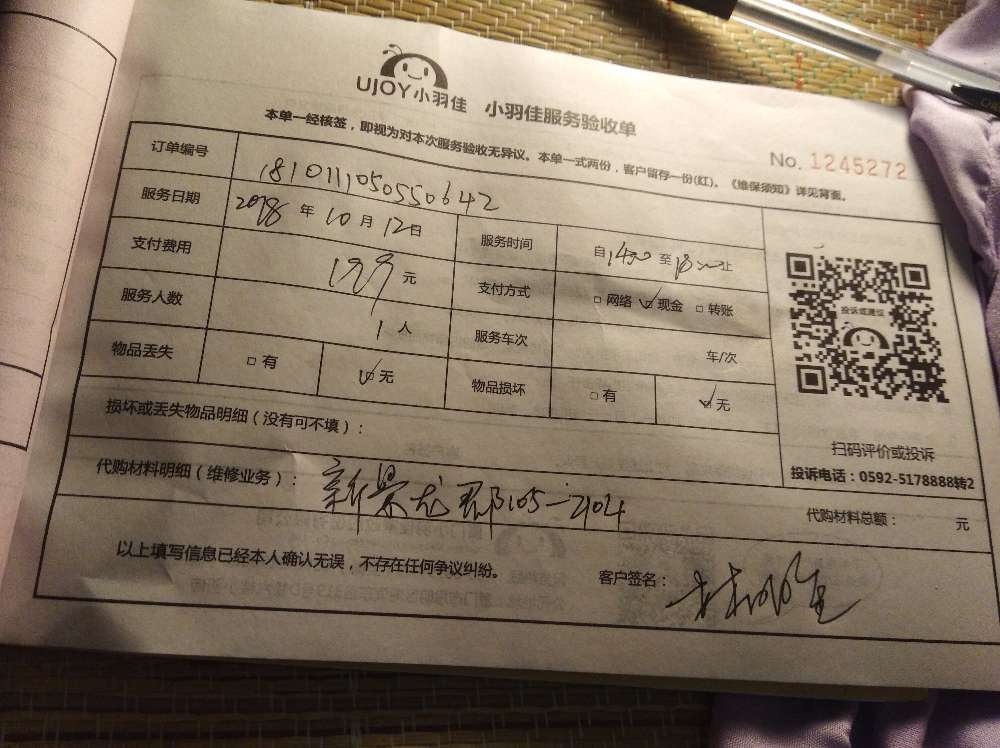 UJOY小羽佳 小羽佳服务验收单
本单一经核签，即视为对本次服务验收无异议。本单一式两份，客户留存一份(红)。《维保须知》详见背面。
No. 1245272
订单编号 1810111050550642
服务日期 2018 年 10 月 12 日 服务时间 自 1400 至 18 00 止
支付费用 199 元 支付方式 □ 网络 ☑ 现金 □ 转账
服务人数 1 人 服务车次 车/次
物品丢失 □ 有 ☑ 无 物品损坏 □ 有 ☑ 无
投诉或建议
扫码评价或投诉
投诉电话：0592-5178888转2
损坏或丢失物品明细（没有可不填）：
代购材料明细（维修业务）： 新景龙郡105-2104
代购材料总额： 元
以上填写信息已经本人确认无误，不存在任何争议纠纷。 客户签名：